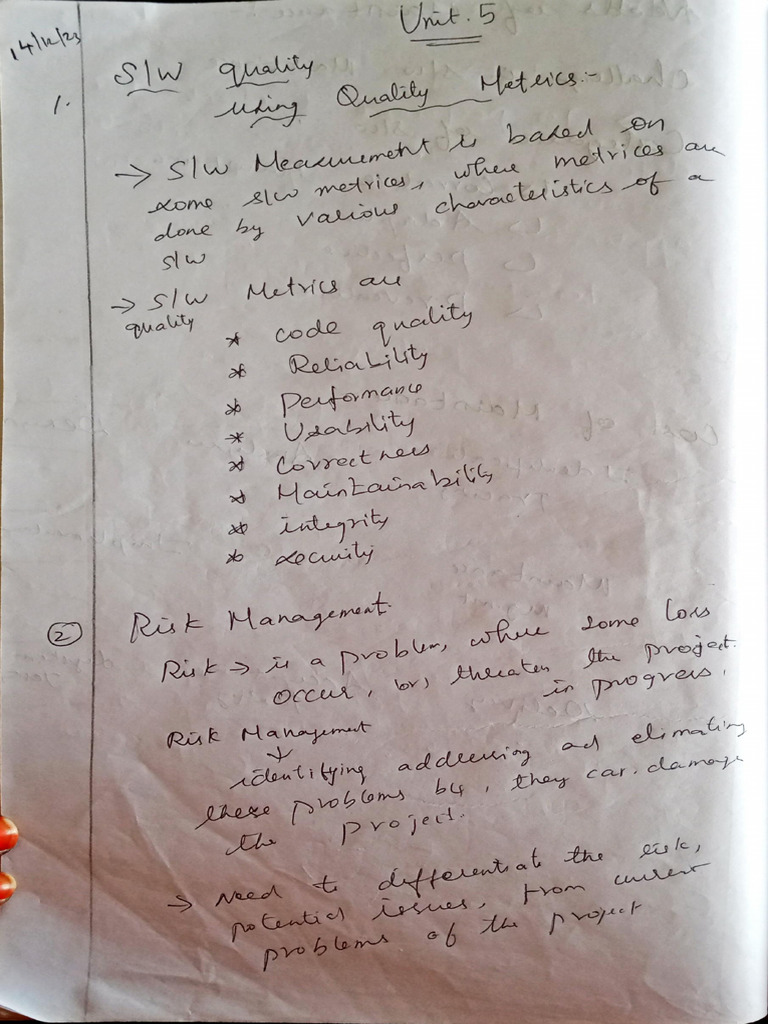 Unit. 5
14/12/23
S/W quality
1. using Quality Metrics:-
→ S/W Measurement is based on
some s/w metrices, where metrices are
done by various characteristics of a
s/w
→ S/W Metrics are
quality
* code quality
* Reliability
* Performance
* Usability
* Correctness
* Maintainability
* integrity
* security
② Risk Management.
Risk → is a problem, where some loss
occur, (or) threaten the project.
in progress.
Risk Management
↓
identifying addressing ad elimating
these problems b4, they car. damage
the project.
→ Need to differentiate the risk,
potential issues, from current
problems of the project